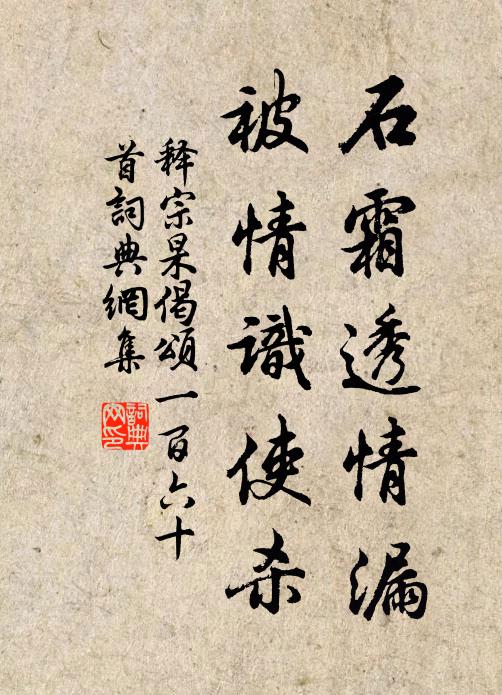 石霜透情漏
被情識使杀
释宗杲偈頌一百六十
首詞典網集
詞典
网印